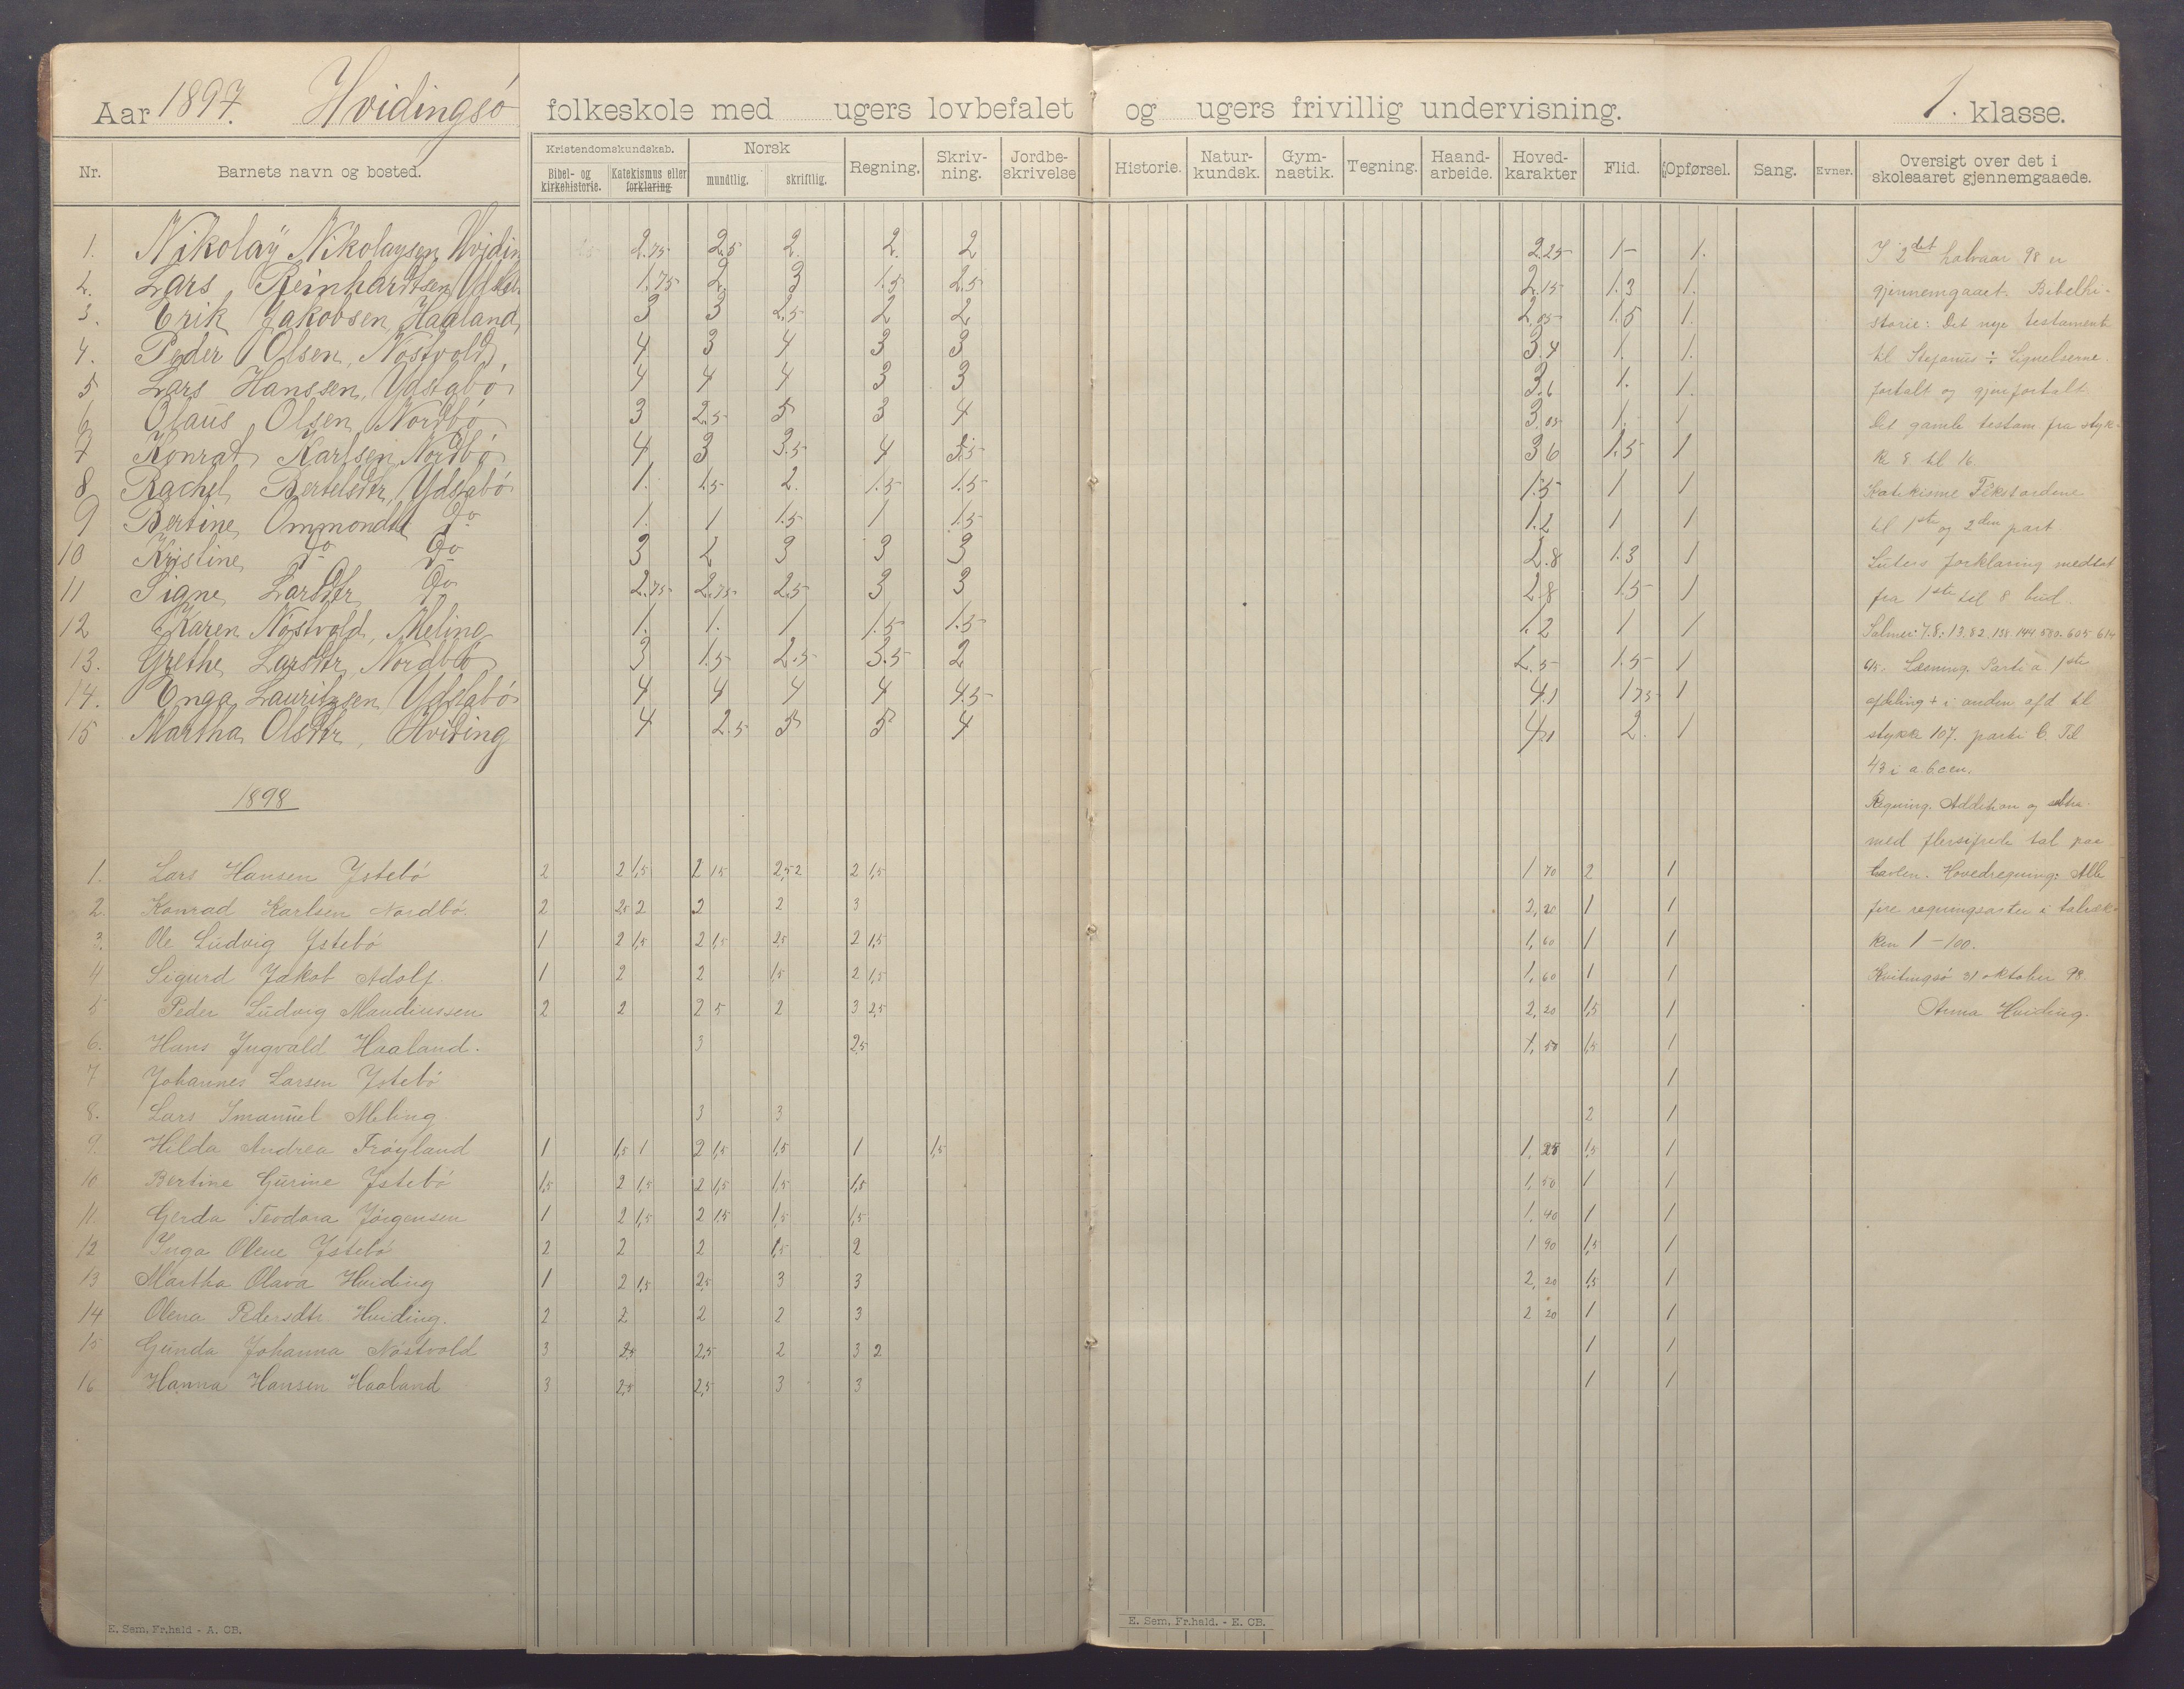 Aar 1897. Hvidingsö folkeskole med ugers lovbefalet og ugers frivillig undervisning. 1. klasse.
Nr. Barnets navn og bosted. Kristendomskundskab. Bibel- og kirkehistorie. Katekismus eller forklaring Norsk mundtlig. skriftlig. Regning. Skriv-ning. Jordbe-skrivelse Historie. Natur-kundsk. Gym-nastik. Tegning. Haand-arbeide. Hoved-karakter Flid. Opførsel. Sang. Evner. Oversigt over det i skoleaaret gjennemgaaede.
1. Nikolaÿ Nikolaysen, Hvidin 2.75 2.5 2. 2. 2 2.25 1 1.
2. Lars Reinhardtsen, 1.75 2. 3 1.5 2.5 2.15 1.3 1.
3. Erik Jakobsen, Haaland, 3 3 2.5 2 2 2.05 1.5 1.
4. Peder Olsen, Nöstvold, 4 3 4 3 3 3.4 1. 1.
5 Lars Hanssen, Ydstabö 4 4 4 3 3 3.6 1. 1.
6 Olaus Olsen, Nordbö 3 2.5 5 3 4 3.05 1. 1
7 Konrat Karlsen, Nordbö 4 3 3.5 4 3.5 3 6 1.5 1
8 Rachel Bertelsdtr, Ydstabö 1. 1.5 2. 1.5 1.5 1.5 1 1
9 Bertine Ommondtr do 1. 1 1.5 1 1.5 1.2 1 1
10 Kristine do do 3 2 3 3 3 2.8 1.3 1
11 Signe Larsdtr do 2.75 2.75 2.5 3 3 2.8 1.5 1
12 Karen Nöstvold, Meling 1. 1. 1 1.5 1.5 1.2 1 1
13. Grethe Larsdtr, Nordbö 3 1.5 2.5 3.5 2 2.5 1.5 1
14. Enga Lauritzsen, Ydstabö 4 4 4 4 4.5 4.1 1 75 1
15 Martha Olsdtr, Hviding 4 2.5 5 5 4 4.1 2. 1
1898
1. Lars Hansen Ystebö 2 2 1,5 2 1 5 2,5 2 2 1,5 1 70 2 1
2. Konrad Karlsen Nordbö. 2 2,5 2 2 2 3 2,20 1 1
3. Ole Ludvig Ystebö 1 2 1,5 2 1,5 2,5 2 1,5 1,60 1 1
4 Sigurd Jakob Adolf. 1 2 2 1,5 2 1,5 1,60 1 1
5 Peder Ludvig Maudiussen 2 2 2 5 2 3 2,5 2,20 1,5 1
6. Hans Ingvald Haaland. 3 2,5 1,50 1,5 1
7 Johannes Larsen Ystebö 1
8. Lars Imanuel Meling 3 3 2 1
9. Hilda Andrea Fröyland 1 1,5 1 2 1,5 1,5 1 1,5 1,25 1,5 1
10 Bertine Gurine Ystebö 1,5 2 1,5 2 1,5 1,5 1,5 1,50 1 1
11. Gerda Teodora Jörgensen 1 2 1,5 2 1,5 1,5 1,5 1,40 1 1
12 Inga Olene Ystebö 2 2 2 1,5 2 1 90 1,5 1
13 Martha Olava Hviding 1 2 1,5 2,5 3 3 2,20 1,5 1
14 Olena Pedersdtr Hviding. 2 2 2 2 3 2 20 1 1
15 Gunda Johanna Nöstvold 3 2,5 2,5 2 3 2 1 1
16 Hanna Hansen Haaland 3 2,5 2,5 3 3 1 1
I 2det halvaar 98 er
gjennemgaaet. Bibelhi-
storie: Det nye testament
til Stefanus ÷ Lignelserne
fortalt og gjenfortalt
Det gamle testam fra styk-
ke 8 til 16
Katekisme Tekstordene
til 1ste og 2den part
Luters forklaring medtat
fra 1ste til 8 bud.
Salmer: 7.8.: 13. 82. 138. 144 580. 605 614
615. Læsning. Parti a 1ste
afdeling + i anden afd til
stykke 107. parti b. Til
43 i a.b.c en.
Regning. Addition og subtra.
med flersifrede tal paa
tavlen. Hovedregning: Alle
fire regningsarter i talræk-
ken 1 – 100.
Kvitingsö 31 oktober 98
Anna Hviding.
E. Sem, Fr.hald - A. CB.
E. Sem, Fr.hald. - E. CB.